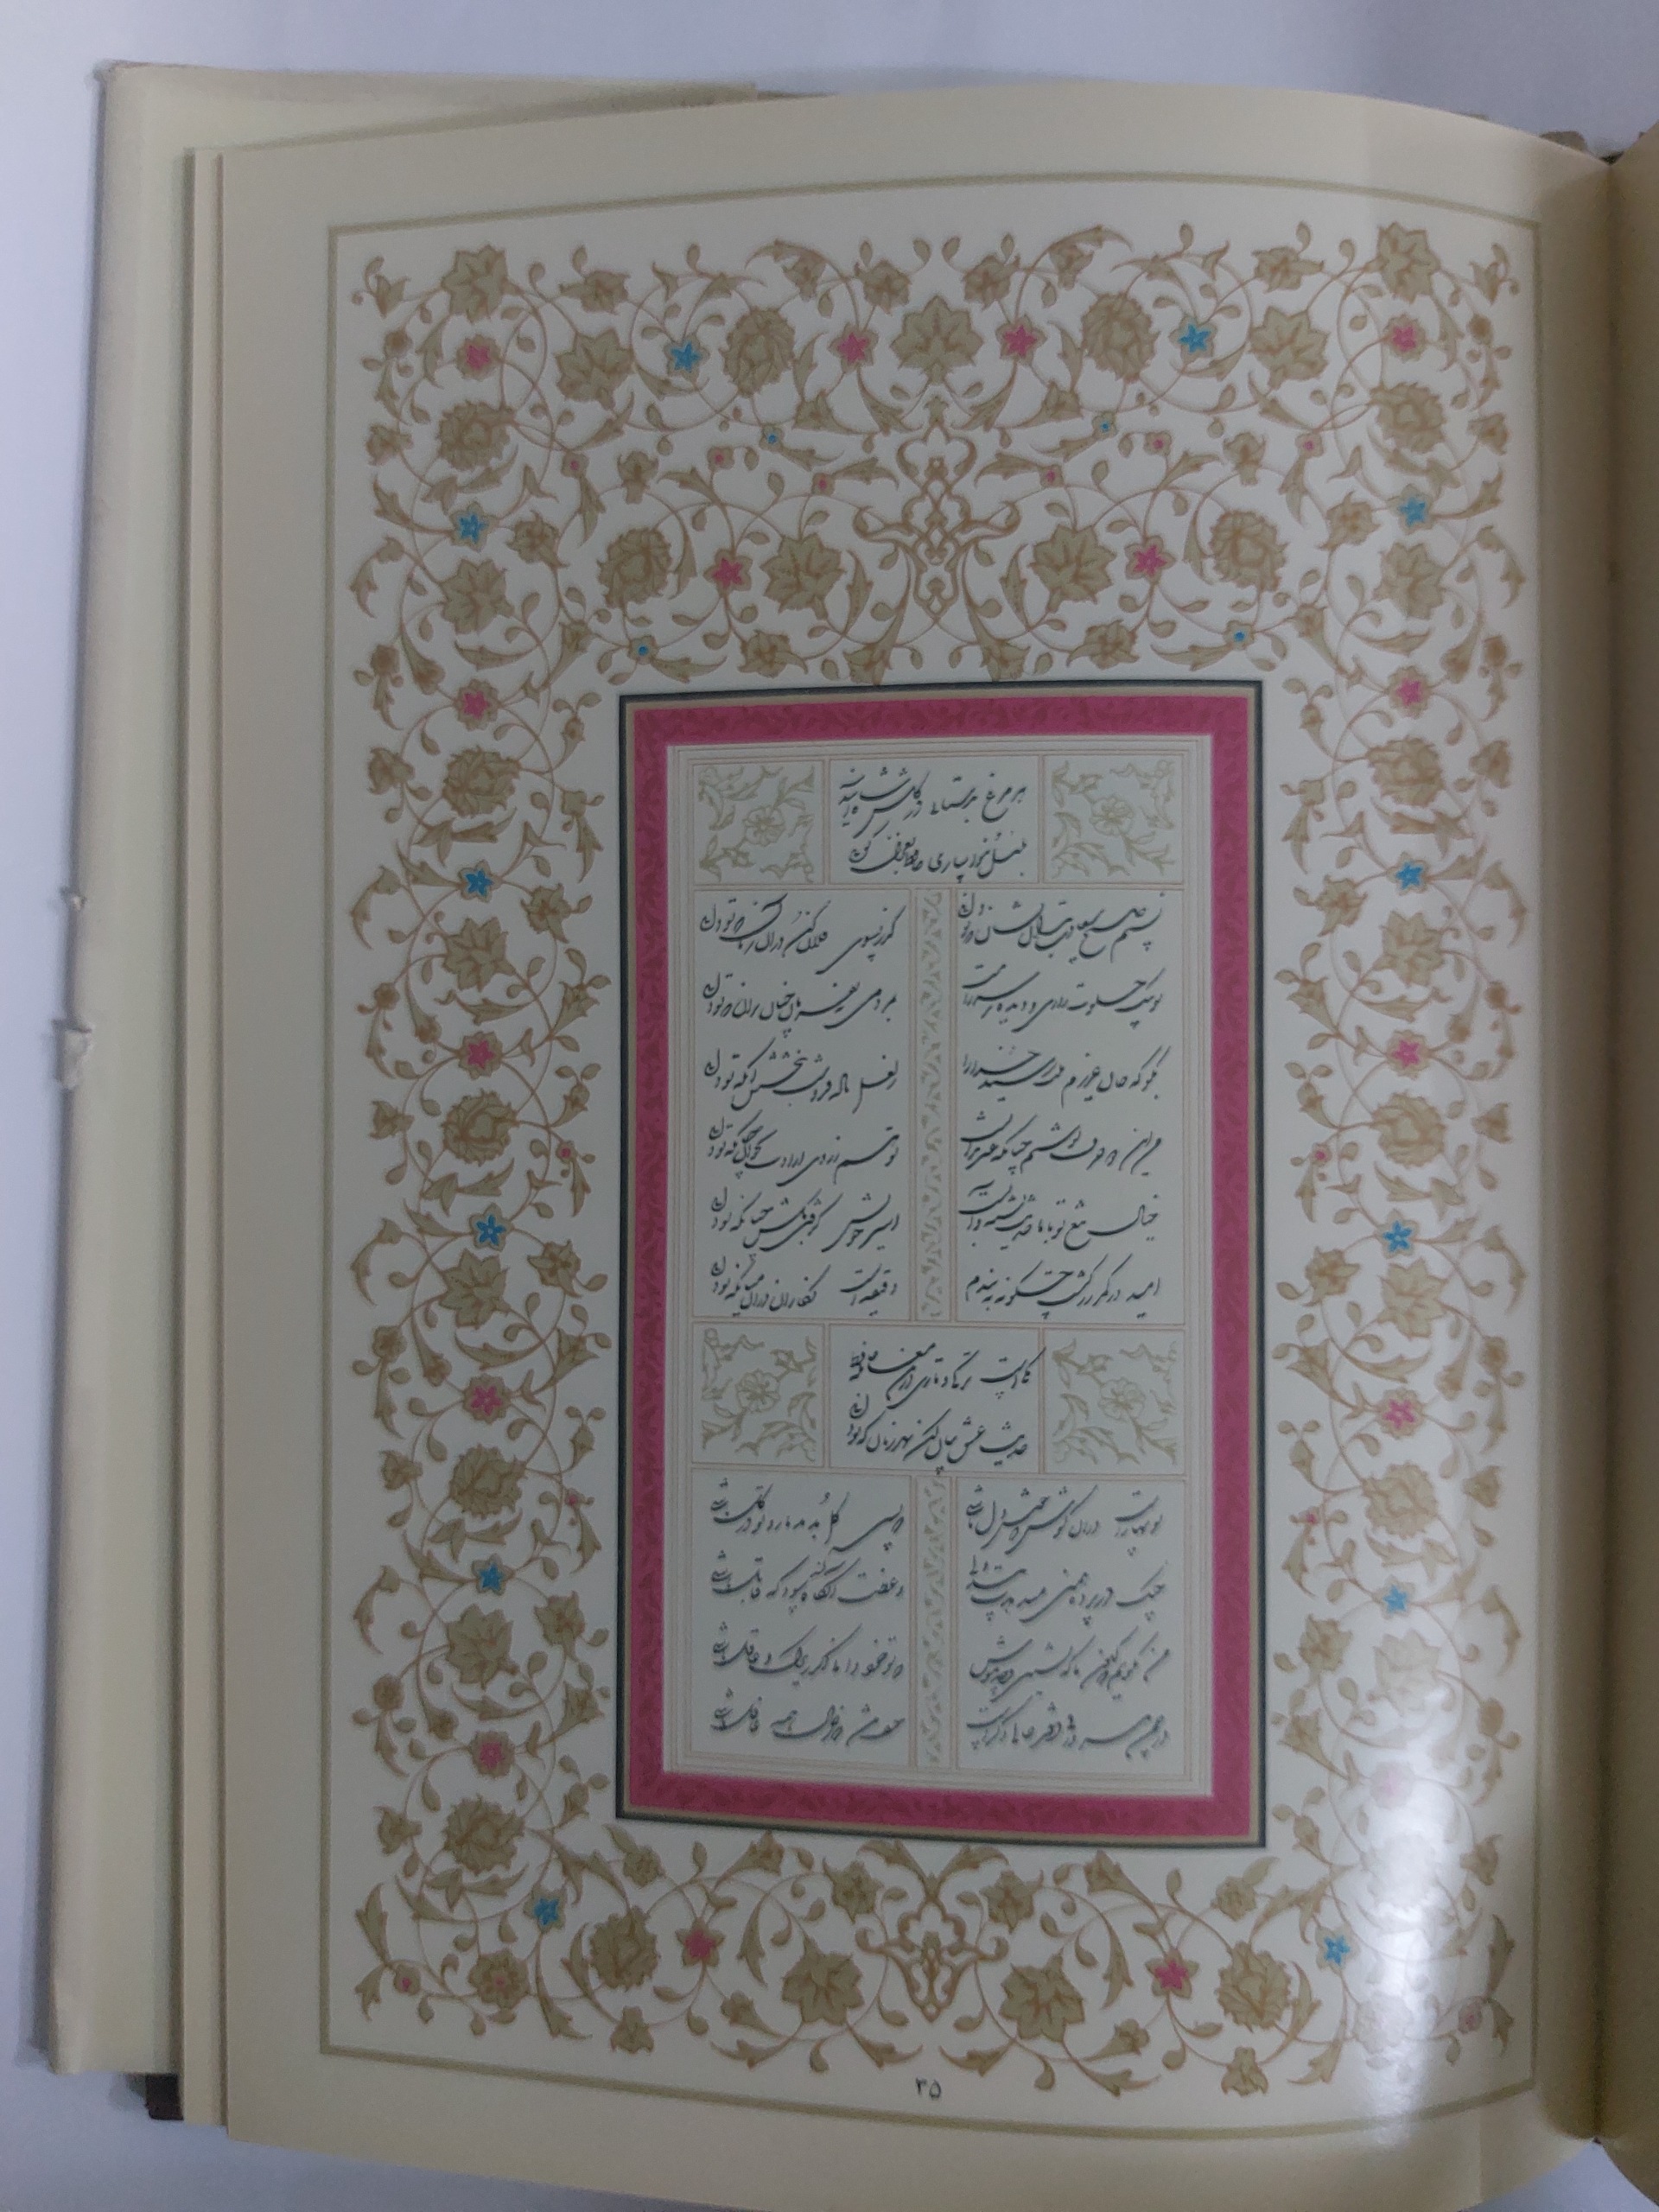 هر مرغ بدستانی در گلشن شاه آید
بلبل بنواسازی حافظ بغزل گوئی
نسیم صبح سعادت بدان نشان که تو دانی
گذر بسوی فلان کن در آن زمان که تو دانی
تو پیک خلوت رازی و دیده بر سر راهت
بمردمی نه بفرمان چنان بران که تو دانی
بگو که جان عزیزم ز دست شد خدا را
ز لعل روح فزایت ببخش آنکه تو دانی
من این حروف نوشتم چنانکه غیر ندانست
تو هم ز روی ارادت بخوان چنانکه تو دانی
خیال تیغ تو با ما حدیث تشنه و آبست
اسیر خویش گرفتی بکش چنانکه تو دانی
امید در کمر زرکشت چگونه به بندم
دقیقه است نگارا در آن میان که تو دانی
یکی است ترکی و تازی درین معامله حافظ
حدیث عشق بیان کن بهر زبان که تو دانی
نوبهار است در آن کوش که خوشدل باشی
که بسی گل بدمد باز و تو در گل باشی
چنگ در پرده همی میدهدت پند ولی
وعظت آنگاه کند سود که قابل باشی
من نگویم که کنون با که نشین و چه بنوش
که تو خود دانی اگر زیرک و عاقل باشی
در چمن هر ورقی دفتر حالی دگر است
حیف باشد که ز حال همه غافل باشی
۳۵